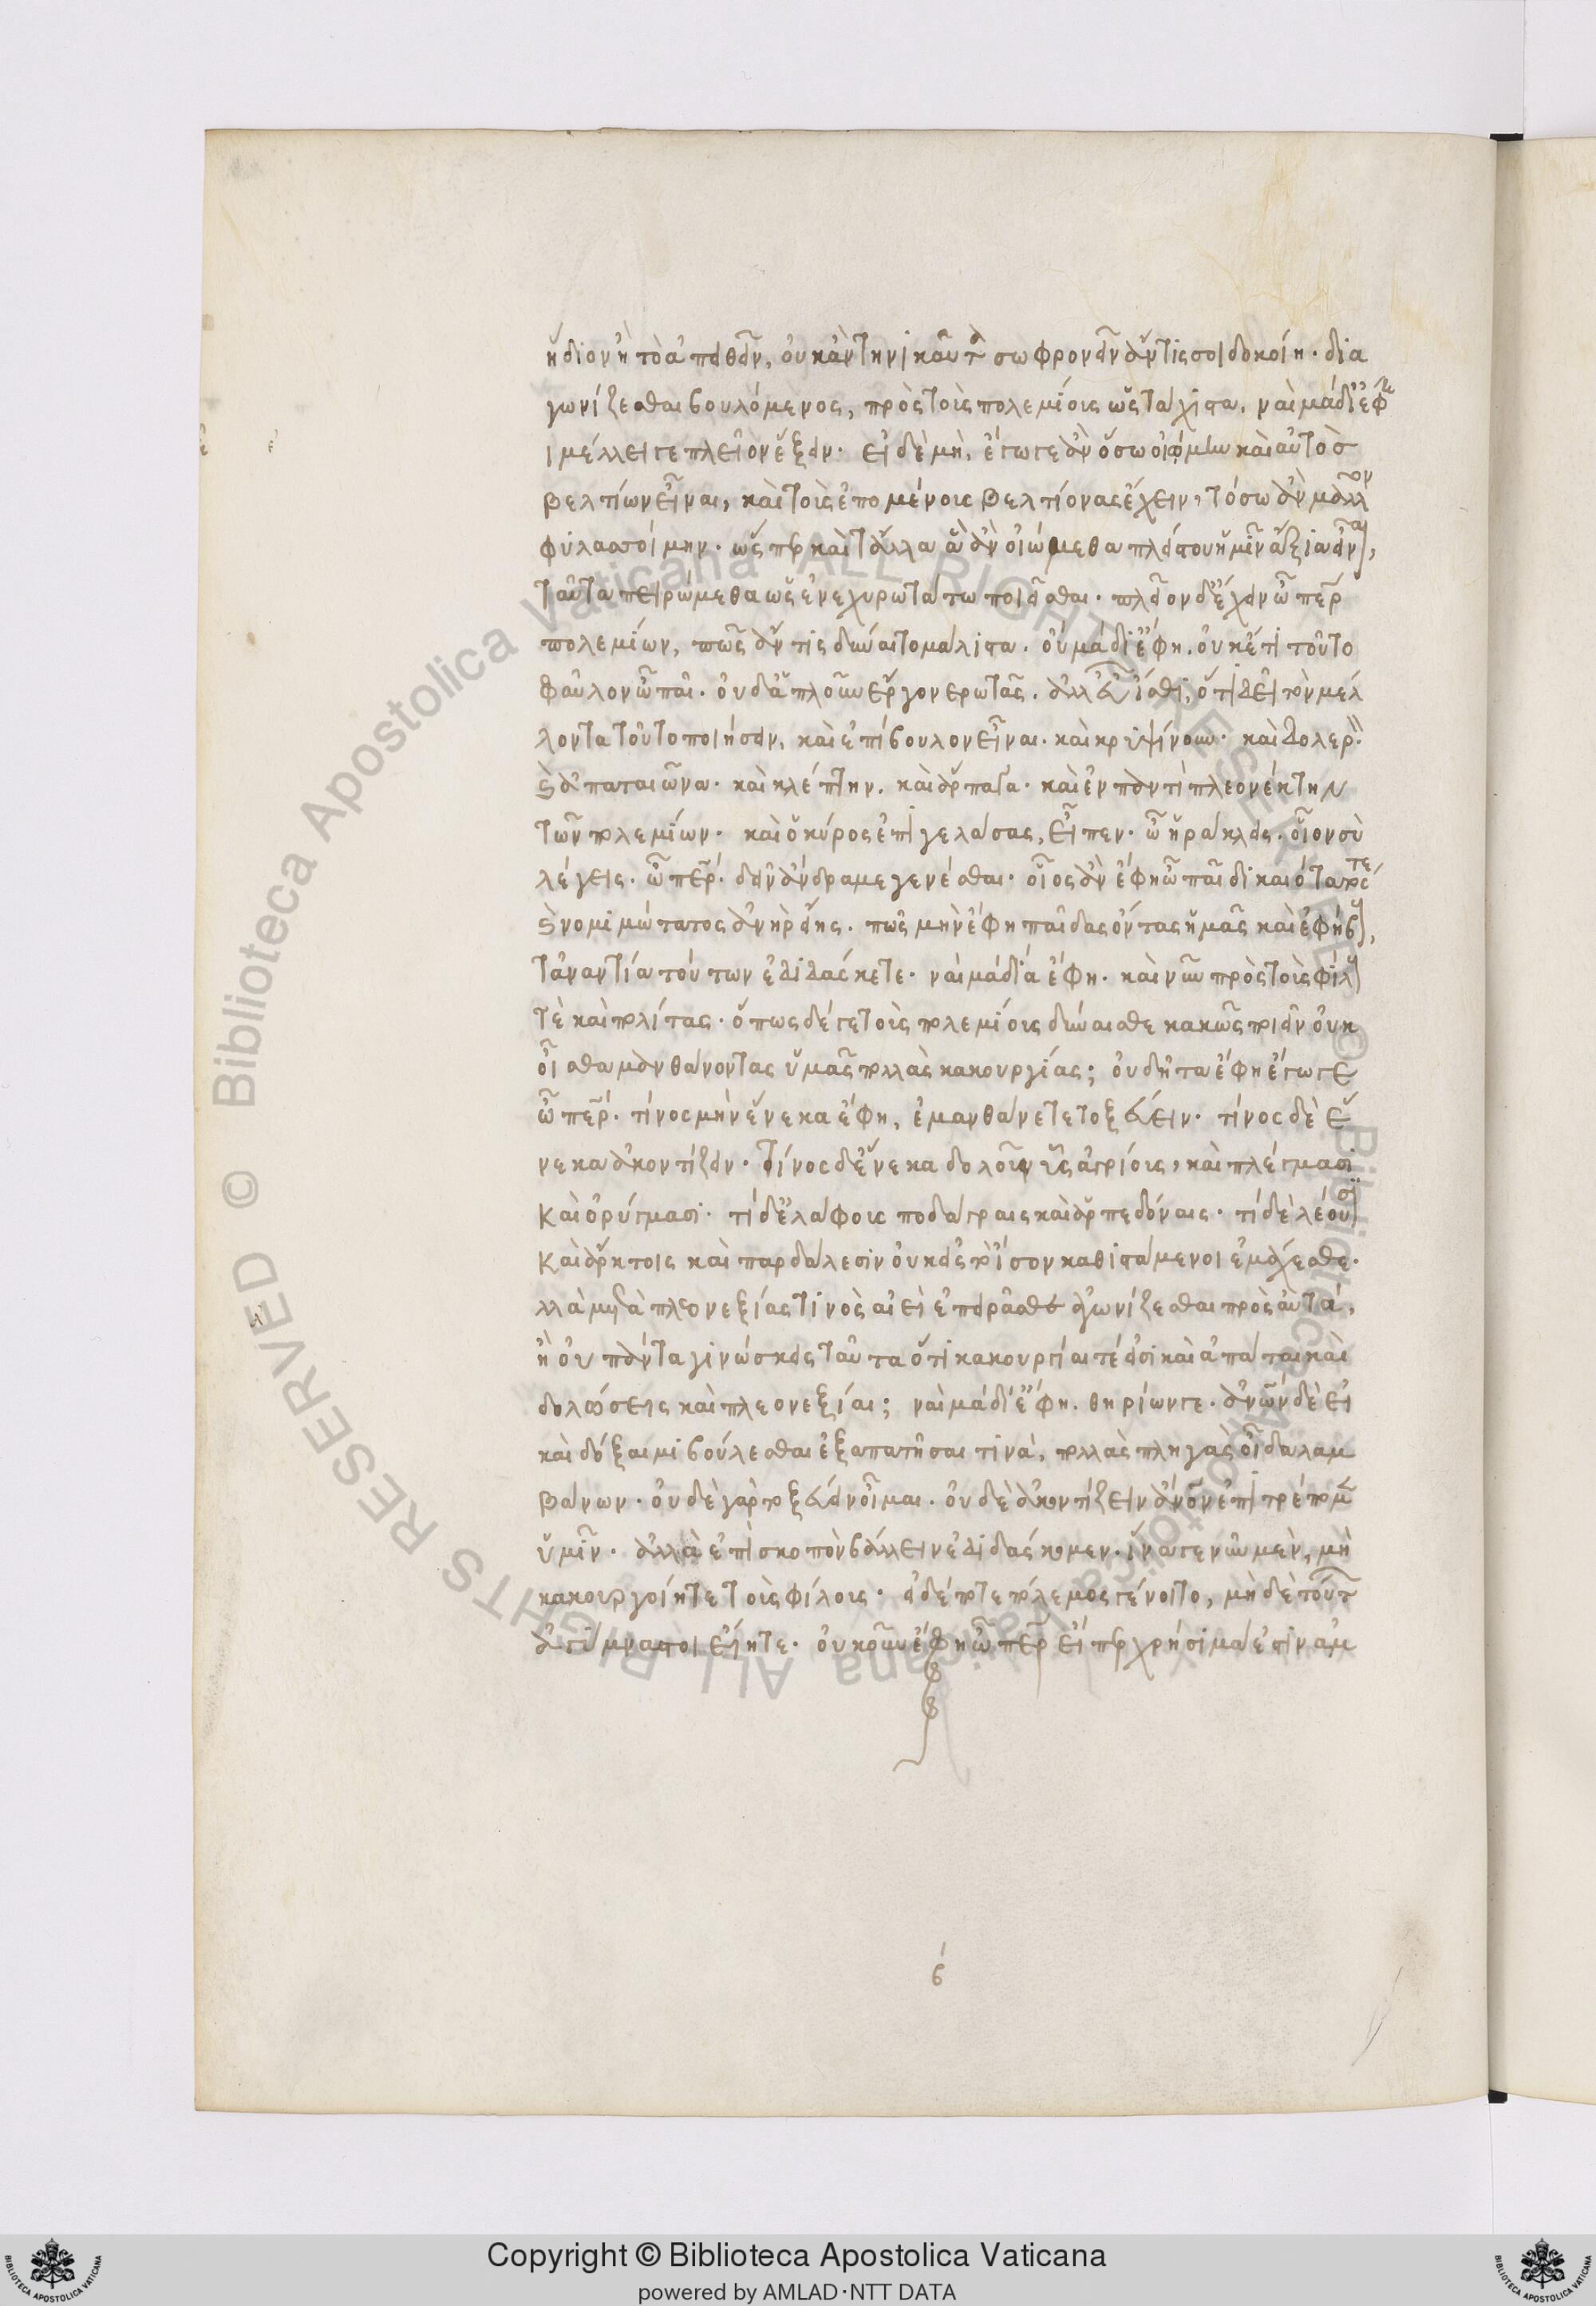 ἥδιον ἢ τὸ ἀπειθεῖν, οὐκ ἂν τηνικαῦτα σωφρονεῖν ἄν τις σοι δοκοίη. δια
γωνίζεσθαι βουλόμενος, πρὸς τοὺς πολεμίους ὡς τάχιστα. ναὶ μὰ δί ἔφη
ι μέλλει γε πλεῖον ἕξειν. εἰ δὲ μὴ, ἔγωγε ἂν ὅσω οἰοίμην καὶ αὐτὸς
βελτίων εἶναι, καὶ τοὺς ἑπομένους βελτίονας ἔχειν, τόσω ἂν μᾶλλον
φυλαττοίμην. ὥσπερ καὶ τἄλλα ἃ ἂν οἰώμεθα πλείστου ἡμῖν ἄξια εἶναι,
ταῦτα πειρώμεθα ὡς ἐνεχυρωτάτω ποιεῖσθαι. πλεῖον δ' ἔχειν ὦ πάτερ
πολεμίων, πῶς ἄν τις δύναιτο μάλιστα. οὐ μὰ δί ἔφη. οὐκέτι τοῦτο
φαῦλον ὦ παῖ. οὐδ' ἁπλοῦν ἔργον ἐρωτᾶς. ἀλλ' εὖ ἴσθι, ὅτι δεῖ τὸν μέλ
λοντα τοῦτο ποιήσειν, καὶ ἐπίβουλον εἶναι. καὶ κρυψίνουν. καὶ δολερὸν
καὶ ἀπαταιῶνα. καὶ κλέπτην. καὶ ἅρπαγα. καὶ ἐν παντὶ πλεονέκτην
τῶν πολεμίων. καὶ ὁ κύρος ἐπιγελάσας, εἶπεν. ὦ ἡράκλεις. οἷον σὺ
λέγεις. ὦ πάτερ. δεῖν ἄνδρα με γενέσθαι. οἷος ἂν ἔφη ὦ παῖ δικαιότατός τε
καὶ νομιμώτατος ἀνὴρ εἴης. πῶς μὴν ἔφη παῖδας ὄντας ἡμᾶς καὶ ἐφήβους,
τἀναντία τούτων ἐδιδάσκετε. ναὶ μὰ δία ἔφη. καὶ νῦν πρὸς τοὺς φίλους
τὲ καὶ πολίτας. ὅπως δέ γε τοὺς πολεμίους δύναισθε κακῶς ποιεῖν οὐκ
οἶσθα μανθάνοντας ὑμᾶς πολλὰς κακουργίας; οὐ δῆτα ἔφη ἔγωγε
ὦ πάτερ. τίνος μὴν ἕνεκα ἔφη, ἐμανθάνετε τοξεύειν. τίνος δὲ ἕ
νεκα ἀκοντίζειν. τίνος δ' ἕνεκα δολοῦν ὗς ἀγρίους, καὶ πλέγμασι
καὶ ὀρύγμασι. τί δ' ἐλάφους ποδάγραις καὶ ἁρπεδόναις. τί δὲ λέουσι
καὶ ἄρκτοις καὶ παρδάλεσιν οὐκ εἰς τὸ ἴσον καθιστάμενοι ἐμάχεσθε.
λλὰ μετὰ πλεονεξίας τινὸς αἰεὶ ἐπειρᾶσθε ἀγωνίζεσθαι πρὸς αὐτά,
ἢ οὐ πάντα γινώσκεις ταῦτα ὅτι κακουργίαι τέ εἰσι καὶ ἀπάται καὶ
δολώσεις καὶ πλεονεξίαι; ναὶ μὰ δί ἔφη. θηρίων γε. ἀνθρώπων δὲ εἰ
καὶ δόξαιμι βούλεσθαι ἐξαπατῆσαι τινὰ, πολλὰς πληγὰς οἶδα λαμ
βάνων. οὐδὲ γὰρ τοξεύειν οἶμαι. οὐδὲ ἀκοντίζειν ἄνθρωπον ἐπιτρέπομεν
ὑμῖν. ἀλλὰ ἐπὶ σκοπὸν βάλλειν ἐδιδάσκομεν. ἵνα γε νῦν μὲν, μὴ
κακουργοίητε τοὺς φίλους. εἰ δέ ποτε πόλεμος γένοιτο, μὴ δὲ τούτου
ἀγύμναστοι εἴητε. οὐκοῦν ἔφη ὦ πάτερ εἴπερ χρήσιμά ἐστιν ἀμ
ϐ